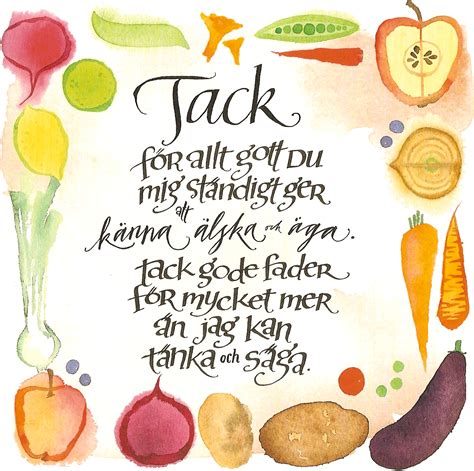 Tack
för allt gott Du
mig ständigt ger
att
känna älska och äga.
tack gode fader
för mycket mer
än jag kan
tänka och säga.